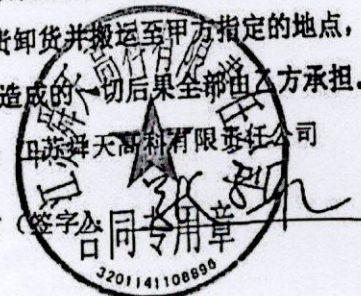 责卸货并搬运至甲方指定的地点，
造成的一切后果全部由乙方承担．
江苏舜天高科有限责任公司
（签字）：
江苏舜天高科有限责任公司
合同专用章
3201141108896